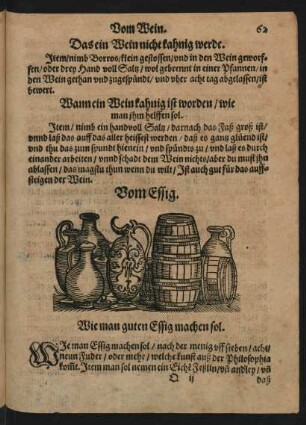 Vom Wein. 62
Das ein Wein nicht kahnig werde.
Item/nimb Borros/klein gestossen/vnd in den Wein geworf-
fen/oder drey Hand voll Saltz/wol gebrennt in einer Pfannen/in
den Wein gethan vnd zugespündt/vnd vber acht tag abgelassen/ist
bewert.
Wann ein Wein kahnig ist worden/wie
man jhm helffen sol.
Item/nimb ein handvoll Saltz/darnach das Faß groß ist/
vnnd laß das auff das aller heissest werden/daß es gantz glüend ist/
vnd thu das zum spundt hienein/vnd spündts zu/vnd laß es durch
einander arbeiten/vnnd schadt dem Wein nichts/aber du must jhn
ablassen/das magstu thun wenn du wilt/Ist auch gut für das auff-
steigen der Wein.
Vom Essig.
Wie man guten Essig machen sol.
WJe man Essig machen sol/nach der menig vff sieben/acht/
neun Fuder/oder mehr/welche kunst auß der Philosophia
kompt. Item man sol nemen ein Eicht Zeßlin/vñ
Q ij daß